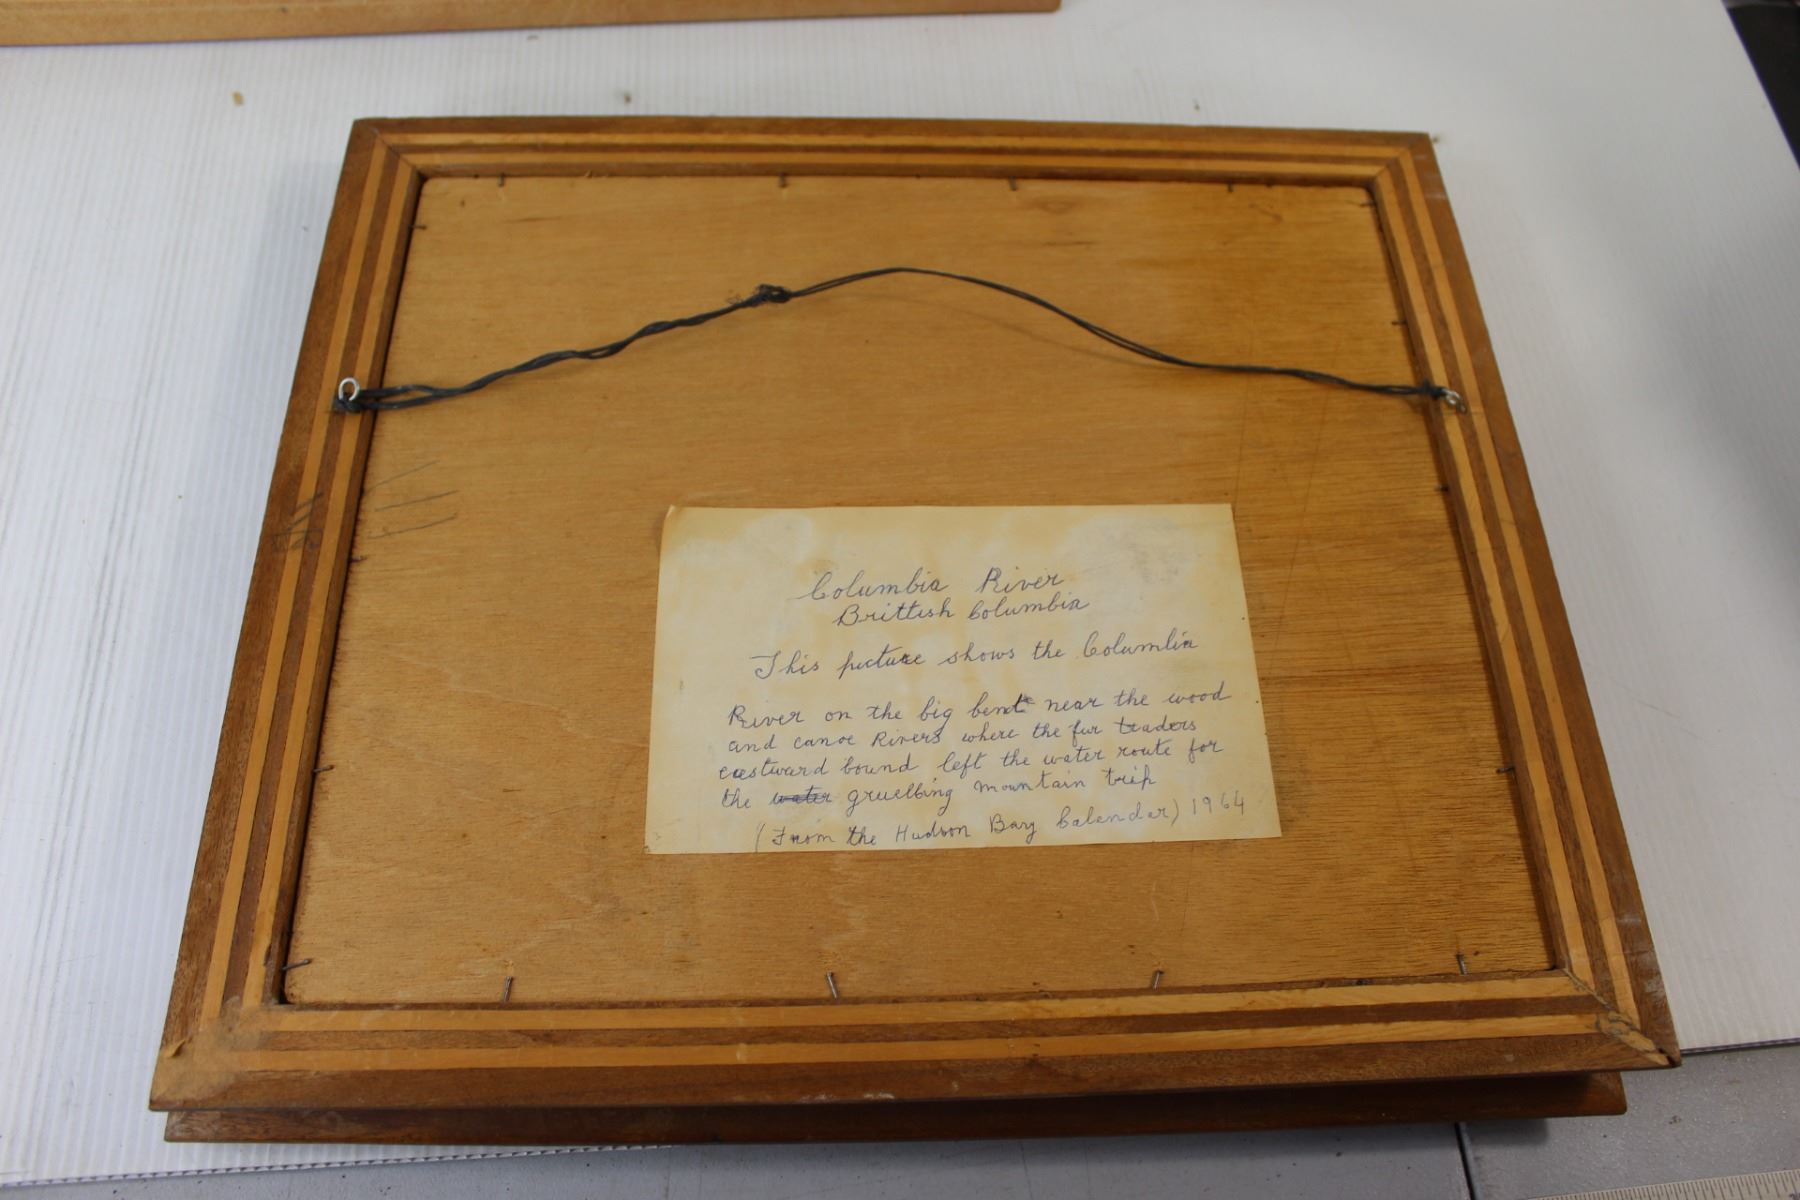 Columbia River
Brittish Columbia
This picture shows the Columbia
River on the big bend near the wood
and canoe Rivers where the fur traders
eastward bound left the water route for
the water gruelling mountain trip
(From the Hudson Bay Calender) 1964